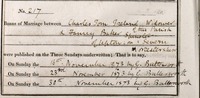 No. 217
Banns of Marriage between Charles Tom Ireland Widower
& Fanny Baker Spinster of this Parish
were published on the Three Sundays underwritten: That is to say,
On Sunday the 16th November 1873 by C. Butterworth
On Sunday the 23rd November 1873 by C. Butterworth
On Sunday the 30th November 1873 by C. Butterworth